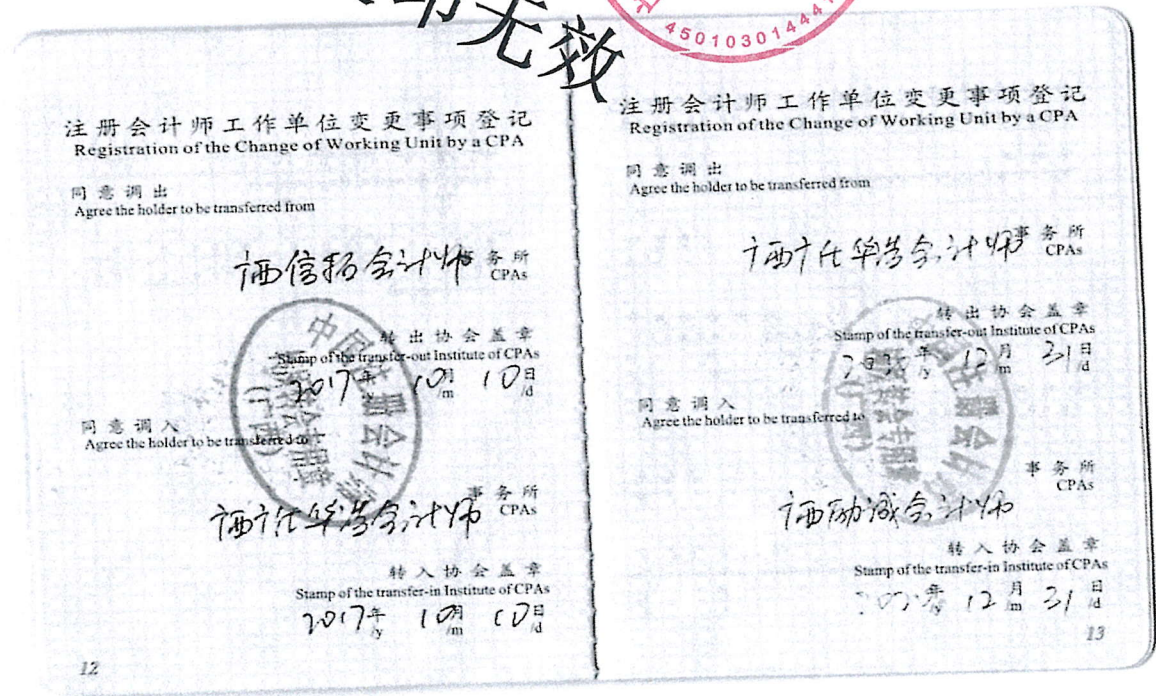 无效
4501030144
注册会计师工作单位变更事项登记
Registration of the Change of Working Unit by a CPA
同意调出
Agree the holder to be transferred from
广西信拓会计师事务所
CPAs
转出协会盖章
Stamp of the transfer-out Institute of CPAs
2017年 10月 10日
/y /m /d
同意调入
Agree the holder to be transferred to
事务所
广西广任华浩会计师 CPAs
转入协会盖章
Stamp of the transfer-in Institute of CPAs
2017年 10月 10日
/y /m /d
12
注册会计师工作单位变更事项登记
Registration of the Change of Working Unit by a CPA
同意调出
Agree the holder to be transferred from
广西广任华浩会计师事务所
CPAs
转出协会盖章
Stamp of the transfer-out Institute of CPAs
年 12月 31日
/y /m /d
同意调入
Agree the holder to be transferred to
事务所
CPAs
广西励诚会计师
转入协会盖章
Stamp of the transfer-in Institute of CPAs
年 12月 31日
/y /m /d
13